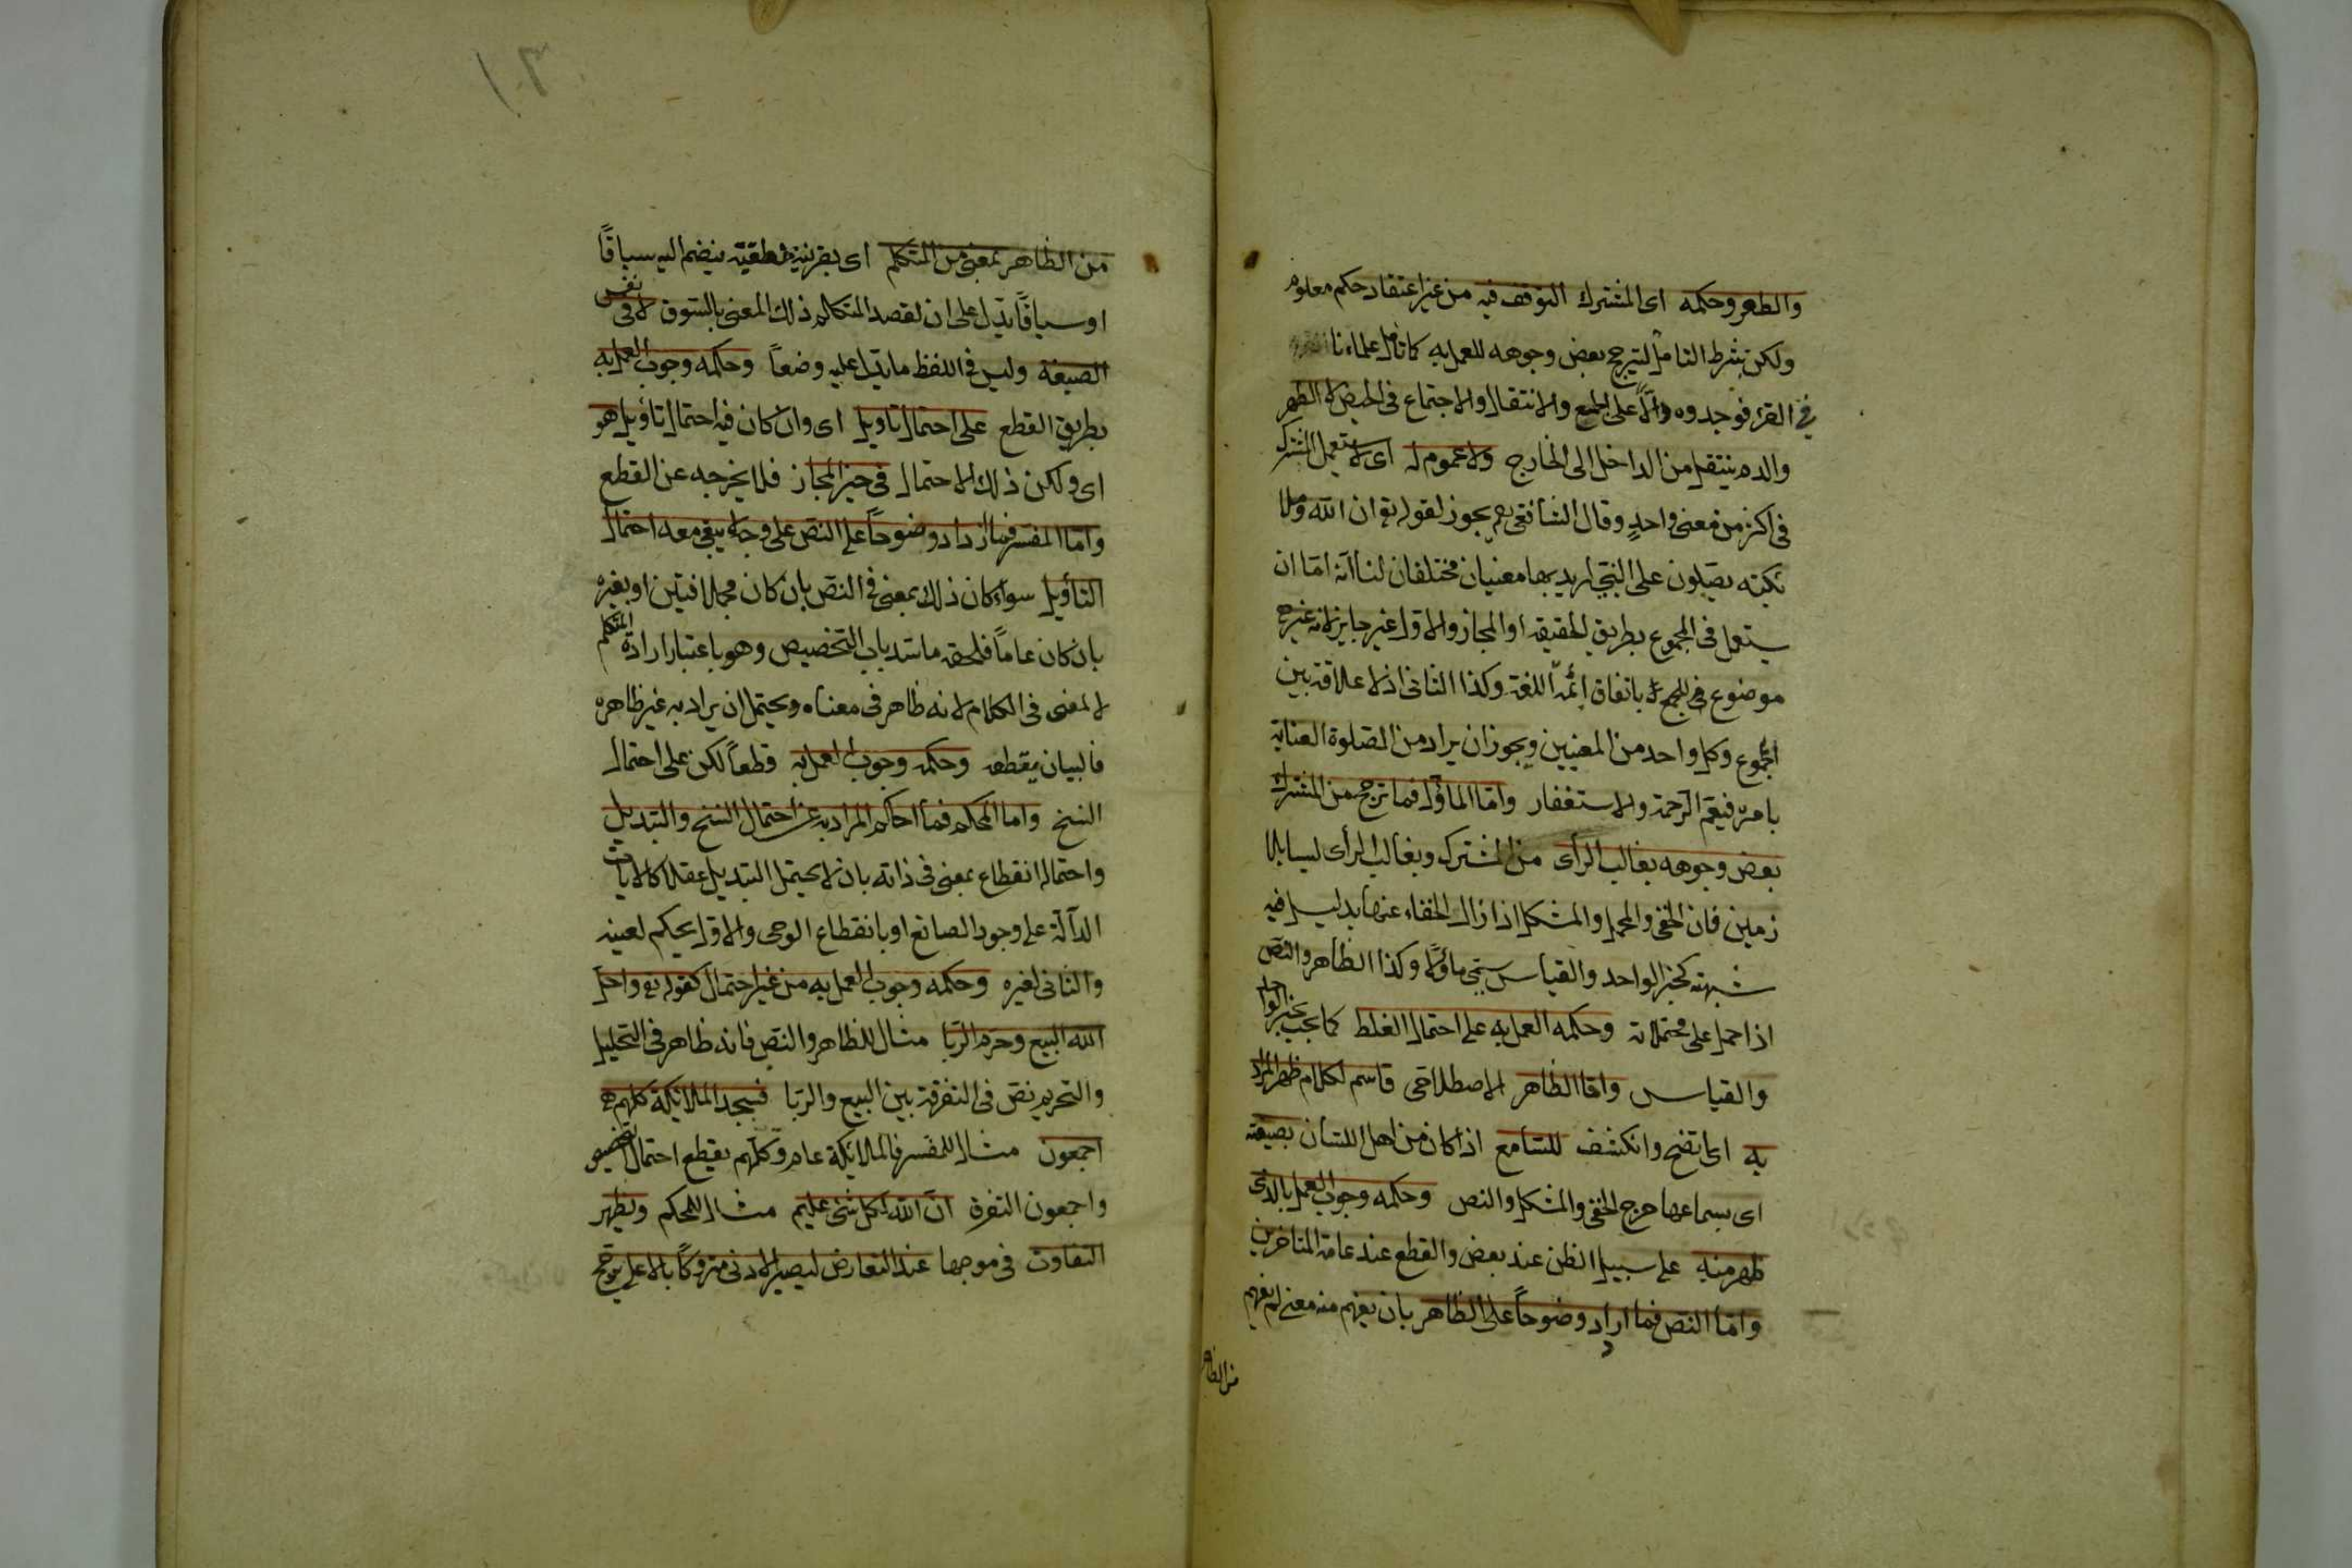 والطهر وحكمه اى المشترك التوقف فيه من غير اعتقاد حكم معلوم
ولكن بشرط التامل ليترجح بعض وجوهه للعمل به كما تامل علماءنا
فى القرء فوجدوه دالاً على الجمع والانتقال والاجتماع فى الحيض لا الطهر
والدم ينتقل من الداخل الى الخارج ولا عموم له اى لا يستعمل المشترك
فى اكثر من معنى واحدٍ وقال الشافعى يجوز لقوله تع ان الله وملا
ئكته يصلون على النبى اريد بها معنيان مختلفان لنا انه اما ان
يستعمل فى المجموع بطريق الحقيقه او المجاز والاول غير جايز لانه غير
موضوع فى المجموع باتفاق ائمة اللغة وكذا الثانى اذ لا علاقة بين
المجموع وكل واحد من المعنيين ويجوز ان يراد من الصلوة العناية
بامره فيعم الرحمة والاستغفار واما الماؤل فما ترجح من المشترك
بعض وجوهه بغالب الرأى من المشترك وبغالب الرأى ليسا بلا
زمين فان الخفى والمجمل والمشكل اذا زال الخفاء عنها بدليل فيه
شبهة كخبر الواحد والقياس سمى مأولاً وكذا الظاهر والنص
اذا حمل على محتملاته وحكمه العمل به على احتمال الغلط كما يجب بخبر الواحد
والقياس واما الظاهر الاصطلاحى فاسم لكلام ظهر المراد
به اى اتضح وانكشف للسامع اذا كان من اهل اللسان بصيغته
اى بسماعها خرج الخفى والمشكل والنص وحكمه وجوب العمل بالذى
ظهر منه على سبيل الظن عند بعض والقطع عند عامة المتاخرين
واما النص فما ازداد وضوحاً على الظاهر بان يفهم منه معنى لم يفهم
من الظاهر
من الظاهر بمعنى من المتكلم اى بقرينة نطقية ينضم اليه سباقاً
او سياقاً يدل على ان لقصد المتكلم ذلك المعنى بالسوق لا فى نفس
الصيغة وليس فى اللفظ ما يدل عليه وضعاً وحكمه وجوب العمل به
بطريق القطع على احتمال تاويل اى وان كان فيه احتمال تأويل هو
اى ولكن ذلك الاحتمال فى حيز المجاز فلا يخرجه عن القطع
واما المفسر فما ازداد وضوحاً على النص على وجه لا يبقى معه احتمال
التأويل سواء كان ذلك بمعنى فى النص بان كان مجملا فبين او بغيره
بان كان عاماً فلحقه ما سد باب التخصيص وهو باعتبار ارادة المتكلم
لا لمعنى فى الكلام لانه ظاهر فى معناه ويحتمل ان يراد به غير ظاهره
فالبيان يقطعه وحكمه وجوب العمل به قطعاً لكن على احتمال
النسخ واما المحكم فما احكم المراد به عن احتمال النسخ والتبديل
واحتمال انقطاع بمعنى فى ذاته بان لا يحتمل التبديل عقلا كالايات
الدآلة على وجود الصانع او بانقطاع الوحى والاول محكم لعينه
والثانى لغيره وحكمه وجوب العمل به من غير احتمال كقوله تع واحل
الله البيع وحرم الربا مثال للظاهر والنص فانه ظاهر فى التحليل
والتحريم نص فى التفرقة بين البيع والربا فسجد الملائكة كلهم
اجمعون مثال للمفسر فالملائكة عام وكلهم يقطع احتمال التخصيص
واجمعون التفرق ان الله بكل شئ عليم مثال للمحكم ويظهر
التفاوت فى موجبها عند التعارض ليصير الادنى متروكاً بالاعلى يترجح